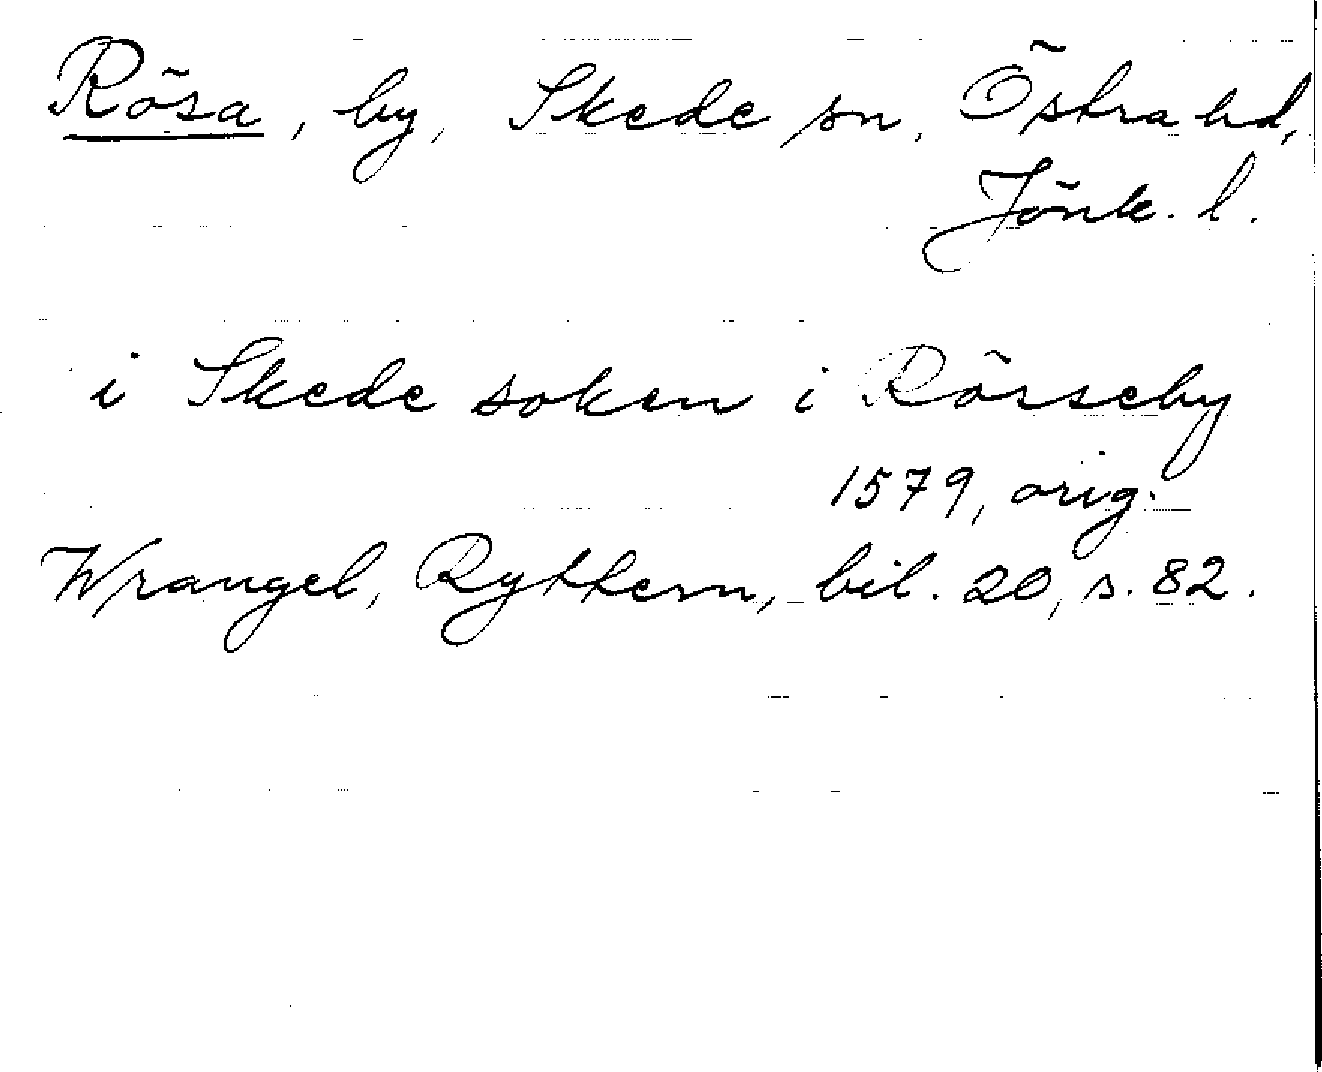 Rösa, by, Skede sn, Östra hd,
Jönk. l.
i Skede soken i Rörseby
1579, orig.
Wrangel, Ryttern, bil. 20, s. 82.